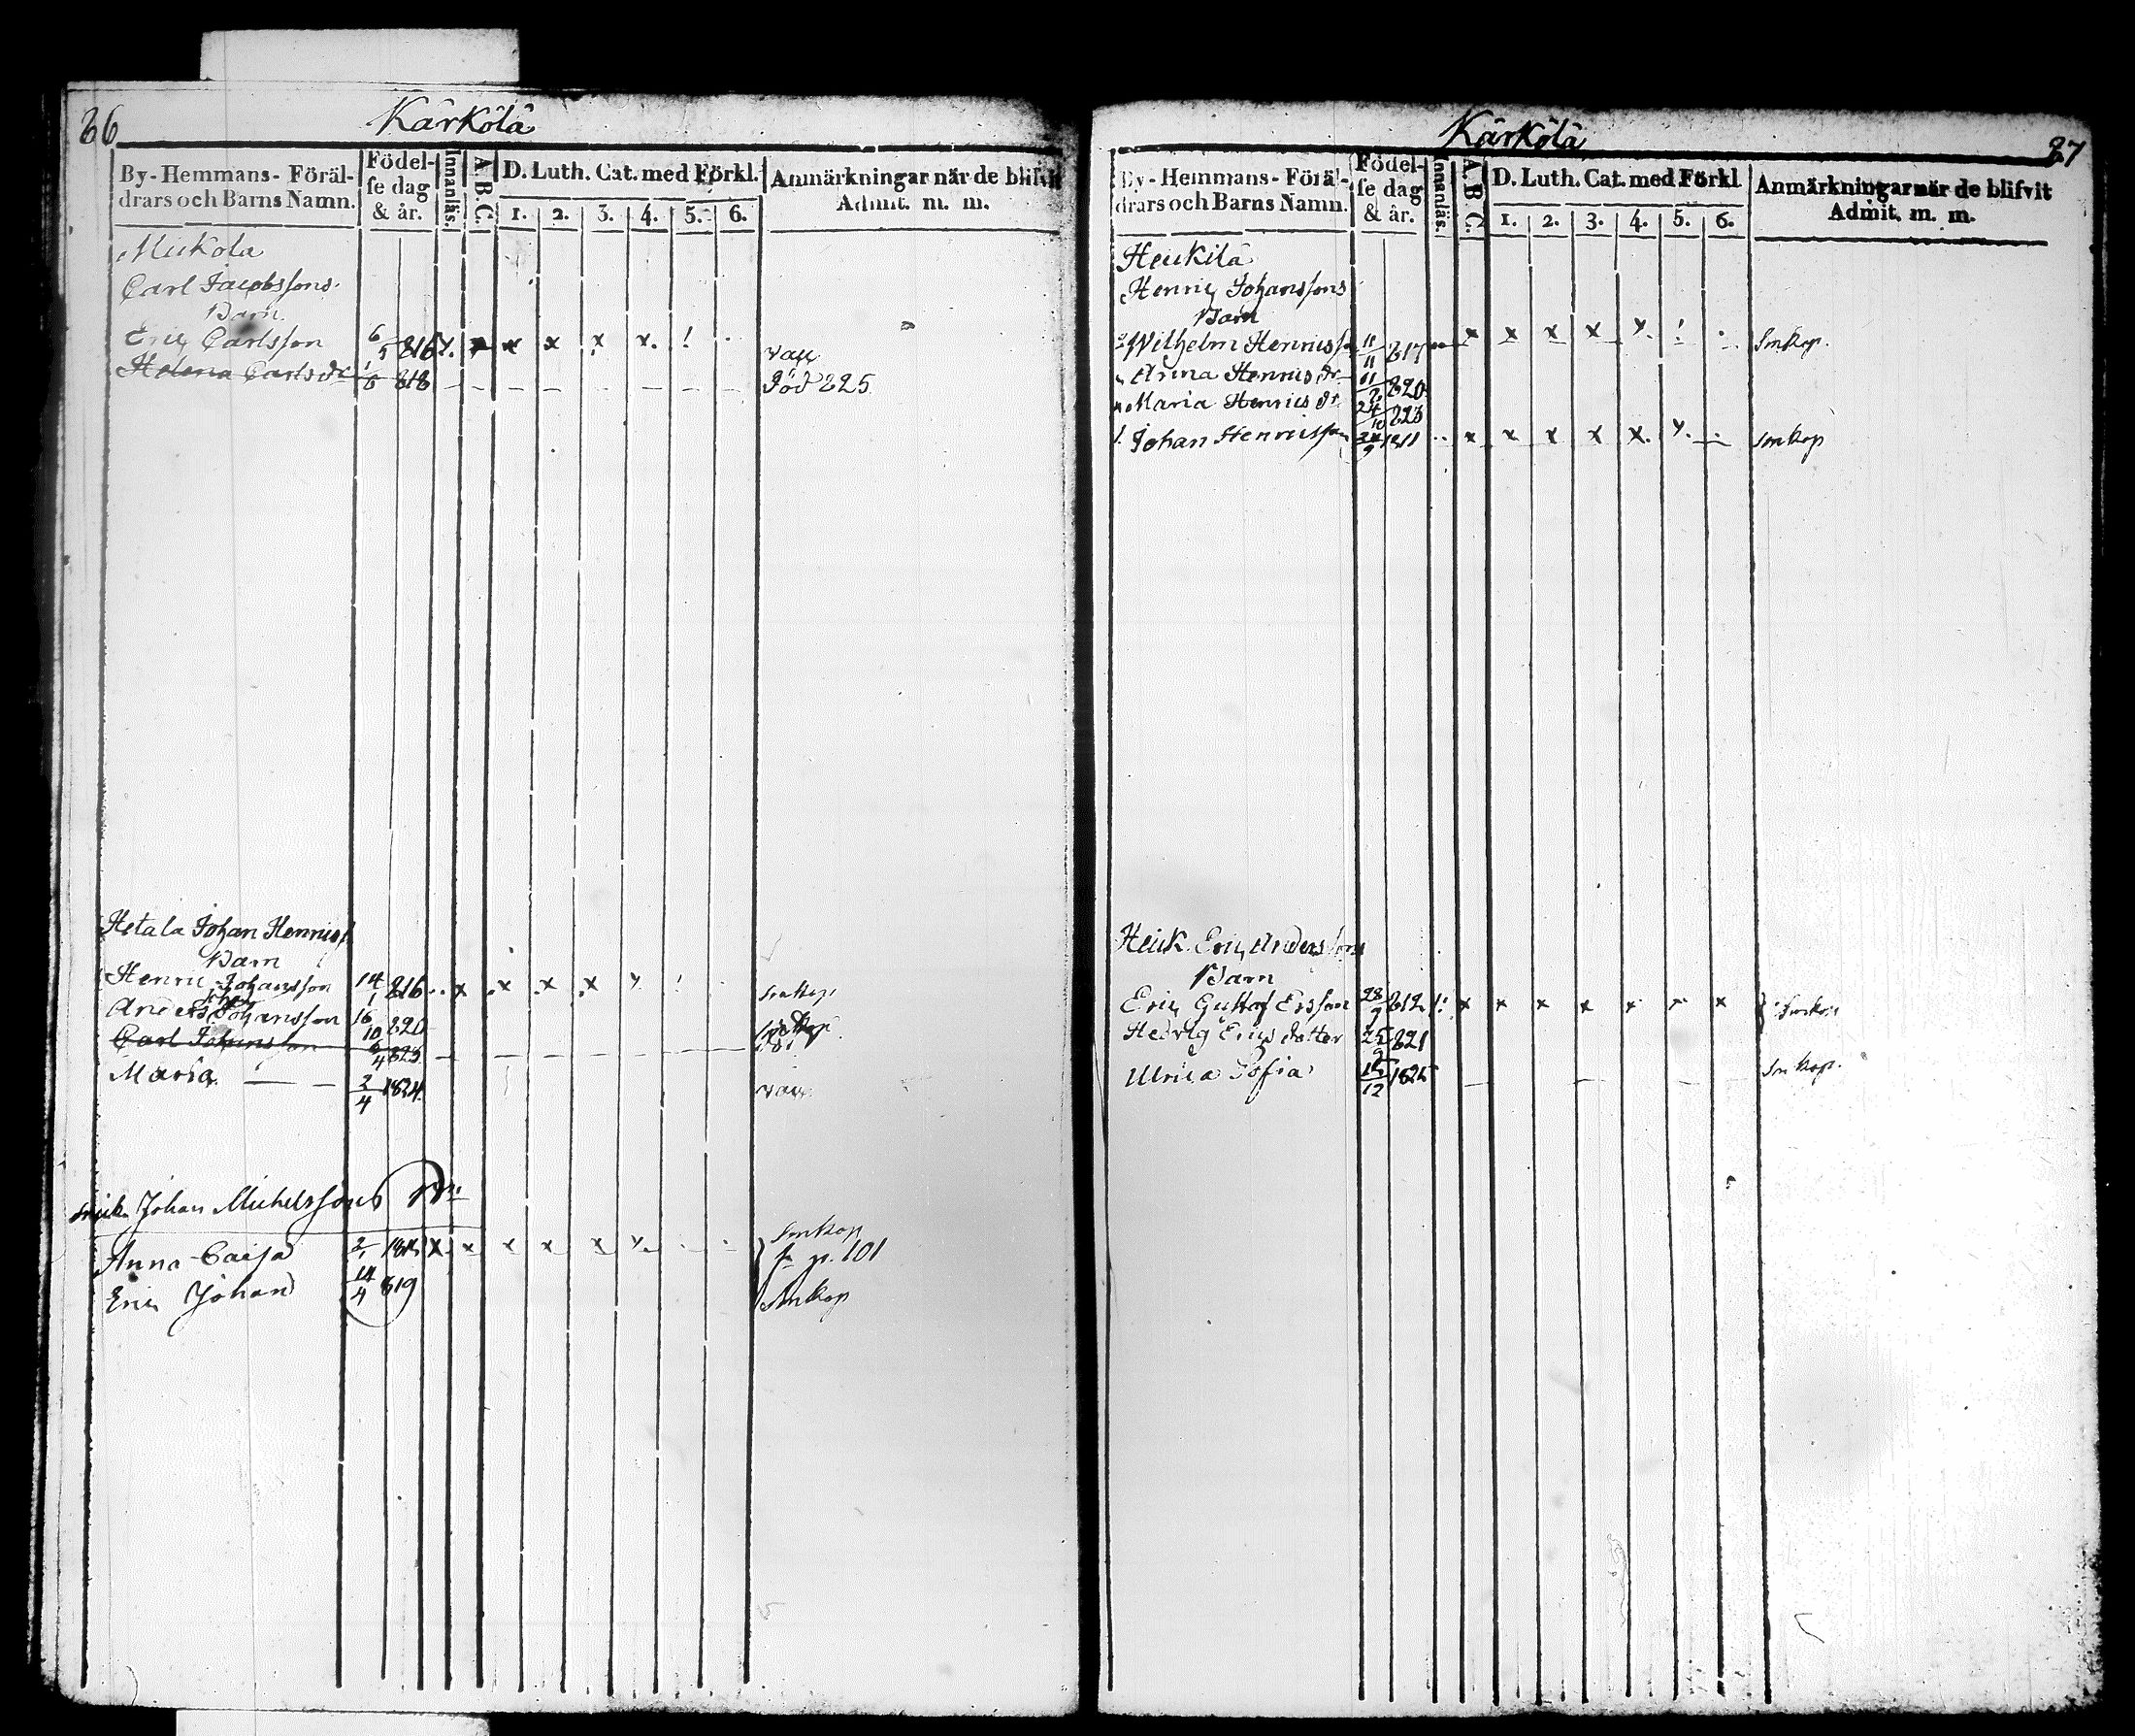 86
Kärkölä
By-Hemmans-Föräl-
drars och Barns Namn.
Födel-
se dag
& år.
Innanläs.
A B C.
D. Luth. Cat. med Förkl.
1. 2. 3. 4. 5. 6.
Anmärkningar när de blifvit
Admit. m. m.
Mickola
Carl Jacobssons
Barn
Eric Carlsson 6/5 816 x x x x x
vac
Helena Carlsdr 1/6 818
död 825.
Hetala Johan Henricss
Barn
Henric Johansson 14/1 816 x x x x
Smkop
Anders Johansson 16/10 820
Carl Johansson 6/4 823
Maria — — 2/4 1824.
vac.
Johan Michelssons Bn
Anna Caisa 2/1 x x x x x
Smkop
fr p. 101
Eric Johan 14/4 819
Smkop
Kärkölä
87
By-Hemmans-Föräl-
drars och Barns Namn.
Födel-
se dag
& år.
Innanläs.
A B C.
D. Luth. Cat. med Förkl
1. 2. 3. 4. 5. 6.
Anmärkningar när de blifvit
Admit. m. m.
Heickilä
Henric Johanssons
Barn
Wilhelm Henricsson 11/11 817 x x x x
Smkop.
Anna Henricsdr 11/2 820
Maria Henricsdr 24/10 823
Johan Henricsson 24/9 1811 x x x x x
Smkop
Heick. Eric Anderssons
Barn
Eric Gustaf Ersson 28/9 812 x x x x x x x
Smkop
Hedvig Ericsdotter 25/9 821
Ulrica Sofia 12 1825
Smkop.